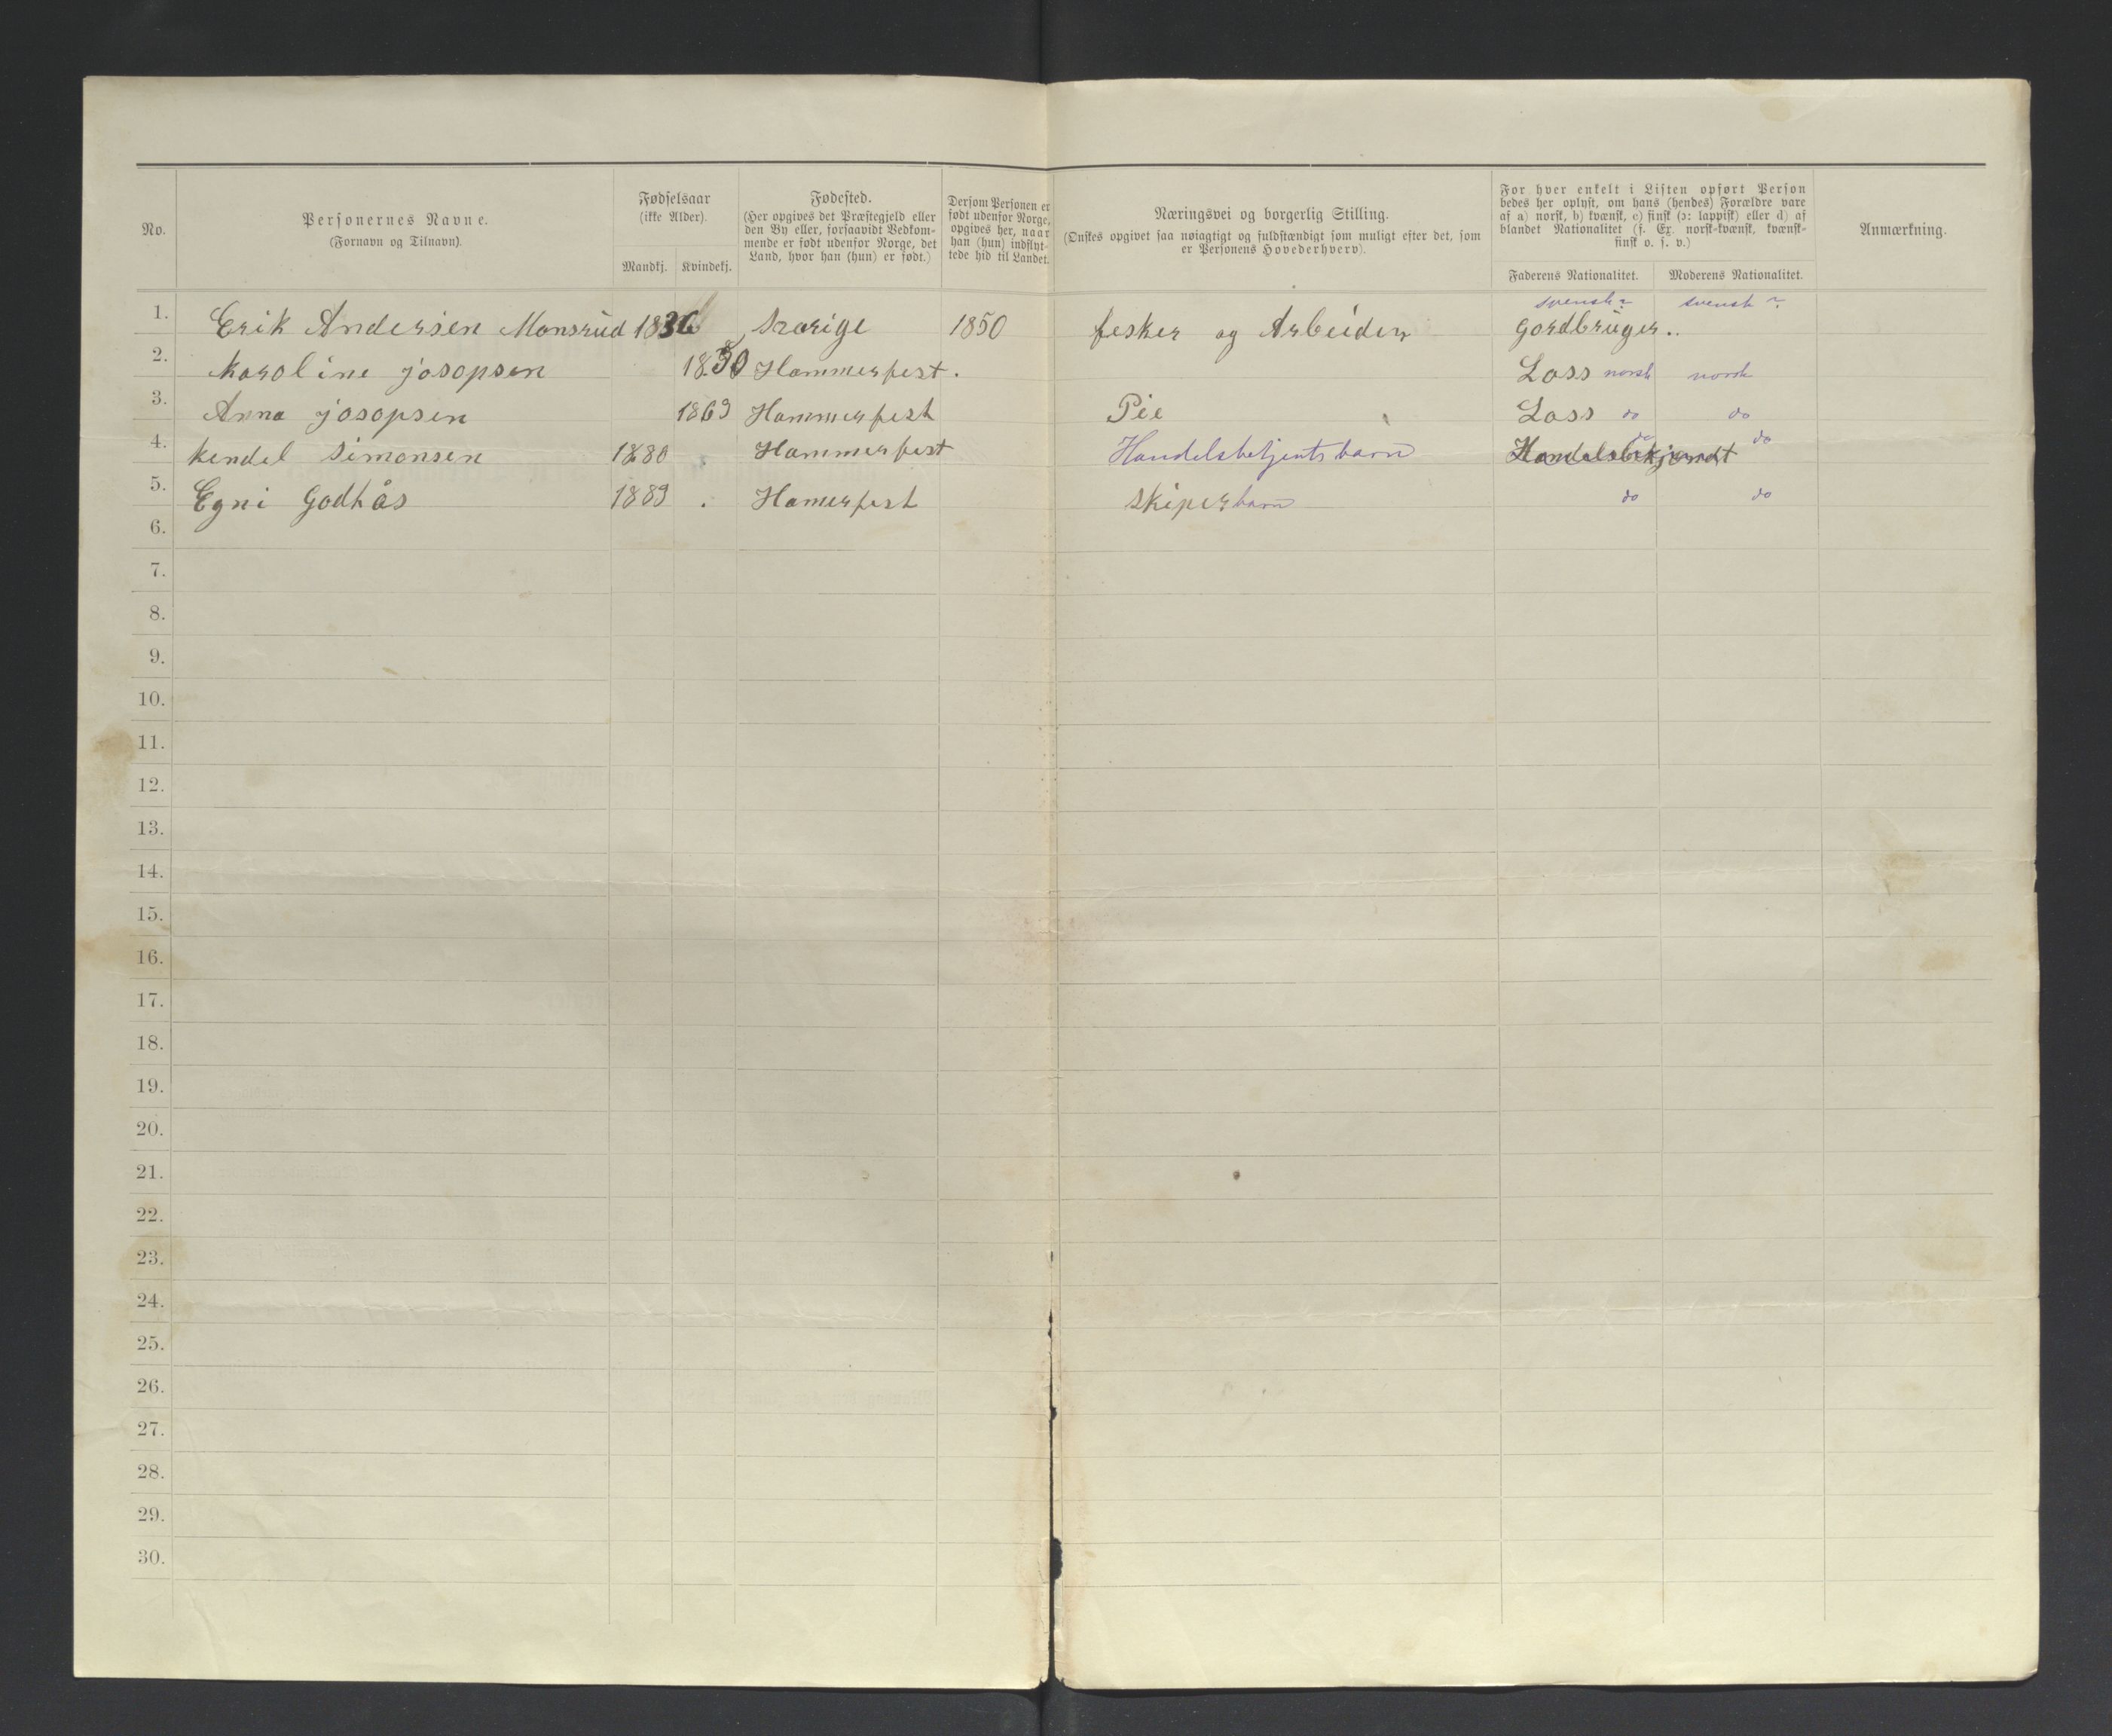 No.
Personernes Navne.
(Fornavn og Tilnavn).
Fødselsaar
(ikke Alder).
Mandkj. Kvindekj.
Fødested.
(Her opgives det Præstegjeld eller
den By eller, forsaavidt Vedkom-
mende er født udenfor Norge, det
Land, hvor han (hun) er født.)
Dersom Personen er
født udenfor Norge,
opgives her, naar
han (hun) indflyt-
tede hid til Landet.
Næringsvei og borgerlig Stilling.
(Ønskes opgivet saa nøiagtigt og fuldstændigt som muligt efter det, som
er Personens Hovederhverv).
For hver enkelt i Listen opført Person
bedes her oplyst, om hans (hendes) Forældre vare
af a) norsk, b) kvænsk, c) finsk (ɔ: lappisk) eller d) af
blandet Nationalitet (f. Ex. norsk-kvænsk, kvænsk-
finsk o. s. v.)
Faderens Nationalitet. Moderens Nationalitet.
Anmærkning.
svensk? svensk?
1. Erik Andersen Monsrud 1836 Svorige 1850 fesker og Arbeider gordbruger..
2. Karoline josopsen 1830 Hammerfest. Loss norsk norsk
3. Anna josopsen 1869 Hammerfest Pie Loss do do
4. Kendel Simonsen 1880 Hammerfest Handelsbetjents barn Handelsbekjendt do do
5. Egni Godkås 1889 Hamerfest Skiper barn do do
6.
7.
8.
9.
10.
11.
12.
13.
14.
15.
16.
17.
18.
19.
20.
21.
22.
23.
24.
25.
26.
27.
28.
29.
30.